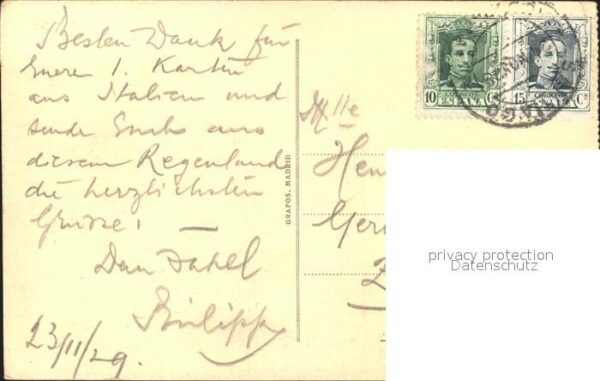 Besten Dank für
Euere l. Karten
aus Italien und
sende Euch aus
diesem Regenland
die herzlichsten
Grüsse!
Philipp
23/11/29.
GRAFOS. MADRID
10 Cs
ESPAÑA
15 Cs
ESPAÑA
Mlle
Hen
Ger
Z
privacy protection
Datenschutz